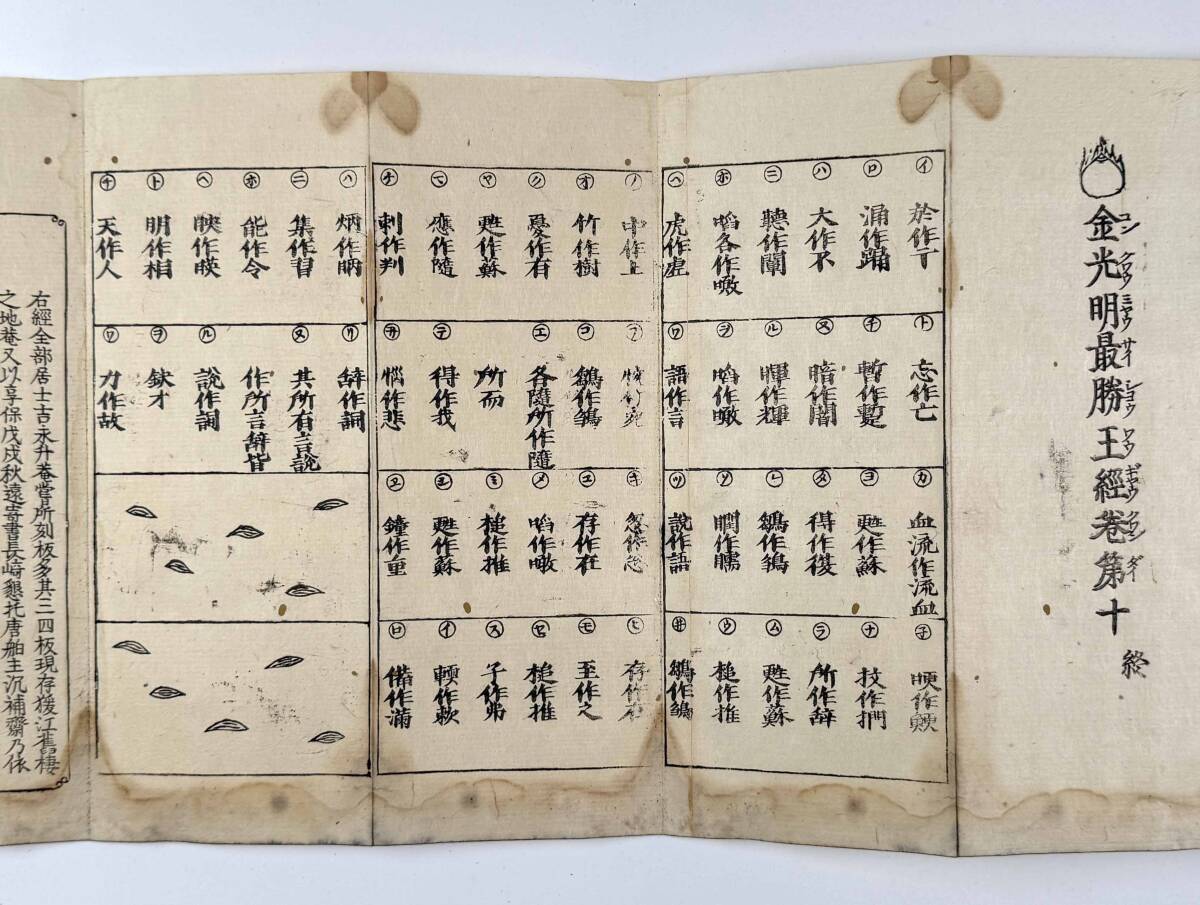 金光明最勝王經卷第十 終
コンクワウミヤウサイシヨウワウギヤウクワンダイ
イ 於作丁
ロ 涌作踊
ハ 大作不
ニ 聽作闡
ホ 㗖各作噉
ヘ 虎作虗
ト 忘作亡
チ 暫作蹔
ヌ 暗作闇
ル 暉作輝
ヲ 㗖作噉
ワ 語作言
カ 血流作流血
ヨ 甦作蘇
タ 得作復
レ 鶵作鴾
ソ 瞤作𦟛
ツ 說作語
子
ナ 技作捫
ラ 所作辞
ム 甦作蘇
ウ 槌作推
井 鶵作鴾
ノ
オ 竹作樹
ク 憂作有
ヤ 甦作蘇
マ 應作隨
チ 刺作判
フ
コ 鶵作鴾
エ 各隨所作隨
所而
テ 得作我
サ 惱作悲
キ
ユ 存作在
メ 㗖作噉
ミ 槌作推
シ 甦作蘇
ヱ 鐘作重
ヒ 存作在
モ 至作之
セ 槌作推
ス 子作弟
イ 輭作軟
ロ 備作滿
ハ 炳作昞
ニ 集作習
ホ 能作令
ヘ 映作暎
ト 明作相
チ 天作人
リ 辞作詞
其所有言說
作所言辞皆
ル 說作詞
ヲ 鈌才
ワ 力作故
右經全部居士吉永升菴嘗所刻板多其三四板現存後江舊棲
之地菴又以享保戊戌秋遠寄書長崎懇托唐舶主沉補齋乃依